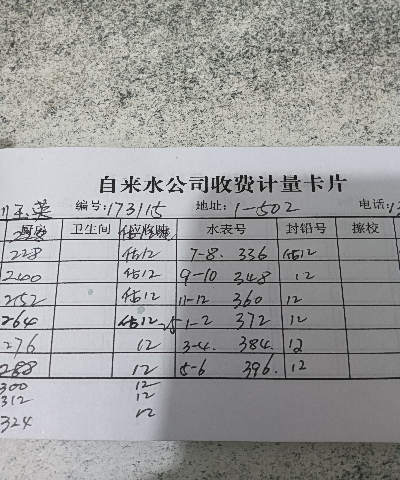 自来水公司收费计量卡片
玉英 编号:173115 地址:1-502 电话:
厨房 卫生间 应收吨 水表号 封铅号 擦校
228 估12 7-8. 336 估12
240 估12 9-10 348 12
252 估12 11-12 360 12
264 估12 25 1-2 372 12
276 12 3-4. 384. 12
288 12 5-6 396. 12
300 12
312 12
324 12